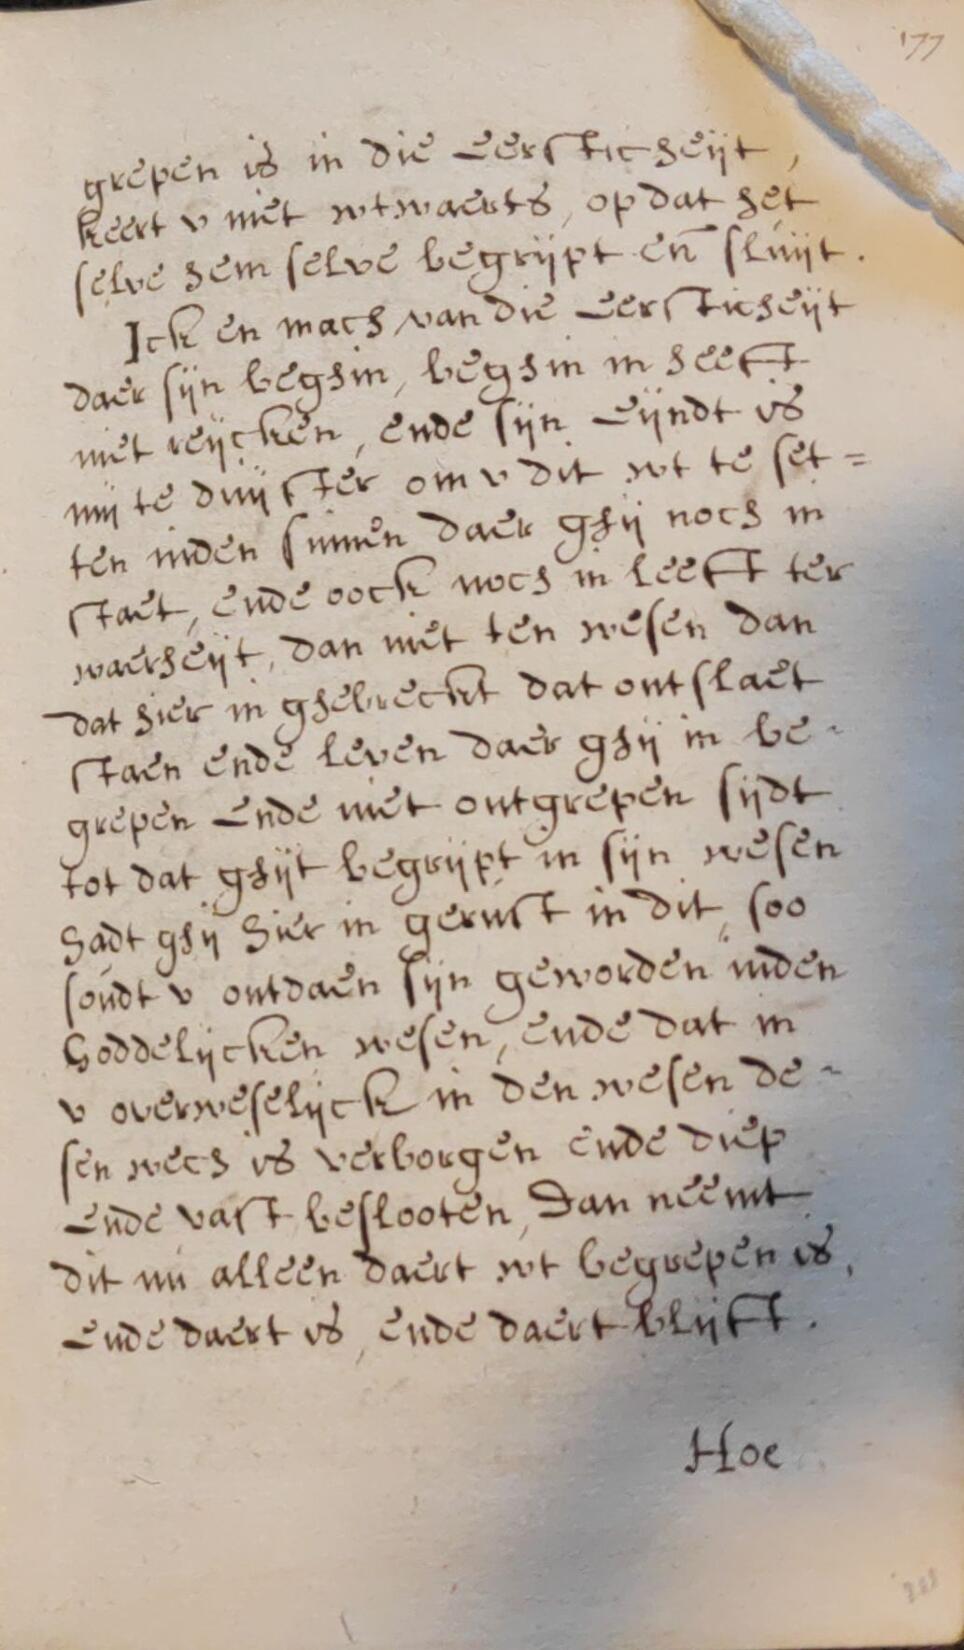 177
grepen is in die eersticheijt,
keert v niet wtwaerts, op dat het
selve hem selve begrijpt en̄ sluijt.
Ick en mach van die eersticheijt
daer sijn beghin, beghin in heeft
niet reijcken, ende sijn eijndt is
mij te duijster om v dit wt te set=
ten inden sinnen daer ghij noch in
staet, ende oock noch in leeft ter
waerheijt, dan niet ten wesen dan
dat hier in ghebreckt dat ontslaet
staen ende leven daer ghij in be-
grepen ende niet ontgrepen sijdt
tot dat ghijt begrijpt in sijn wesen
hadt ghij hier in gerust in dit, soo
soudt v ontdaen sijn geworden inden
Goddelijcken wesen, ende dat in
v overweselijck in den wesen de-
sen wech is verborgen ende diep
ende vast beslooten, Dan neemt
dit nu alleen daert wt begrepen is,
ende daert is, ende daert blijft.
Hoe